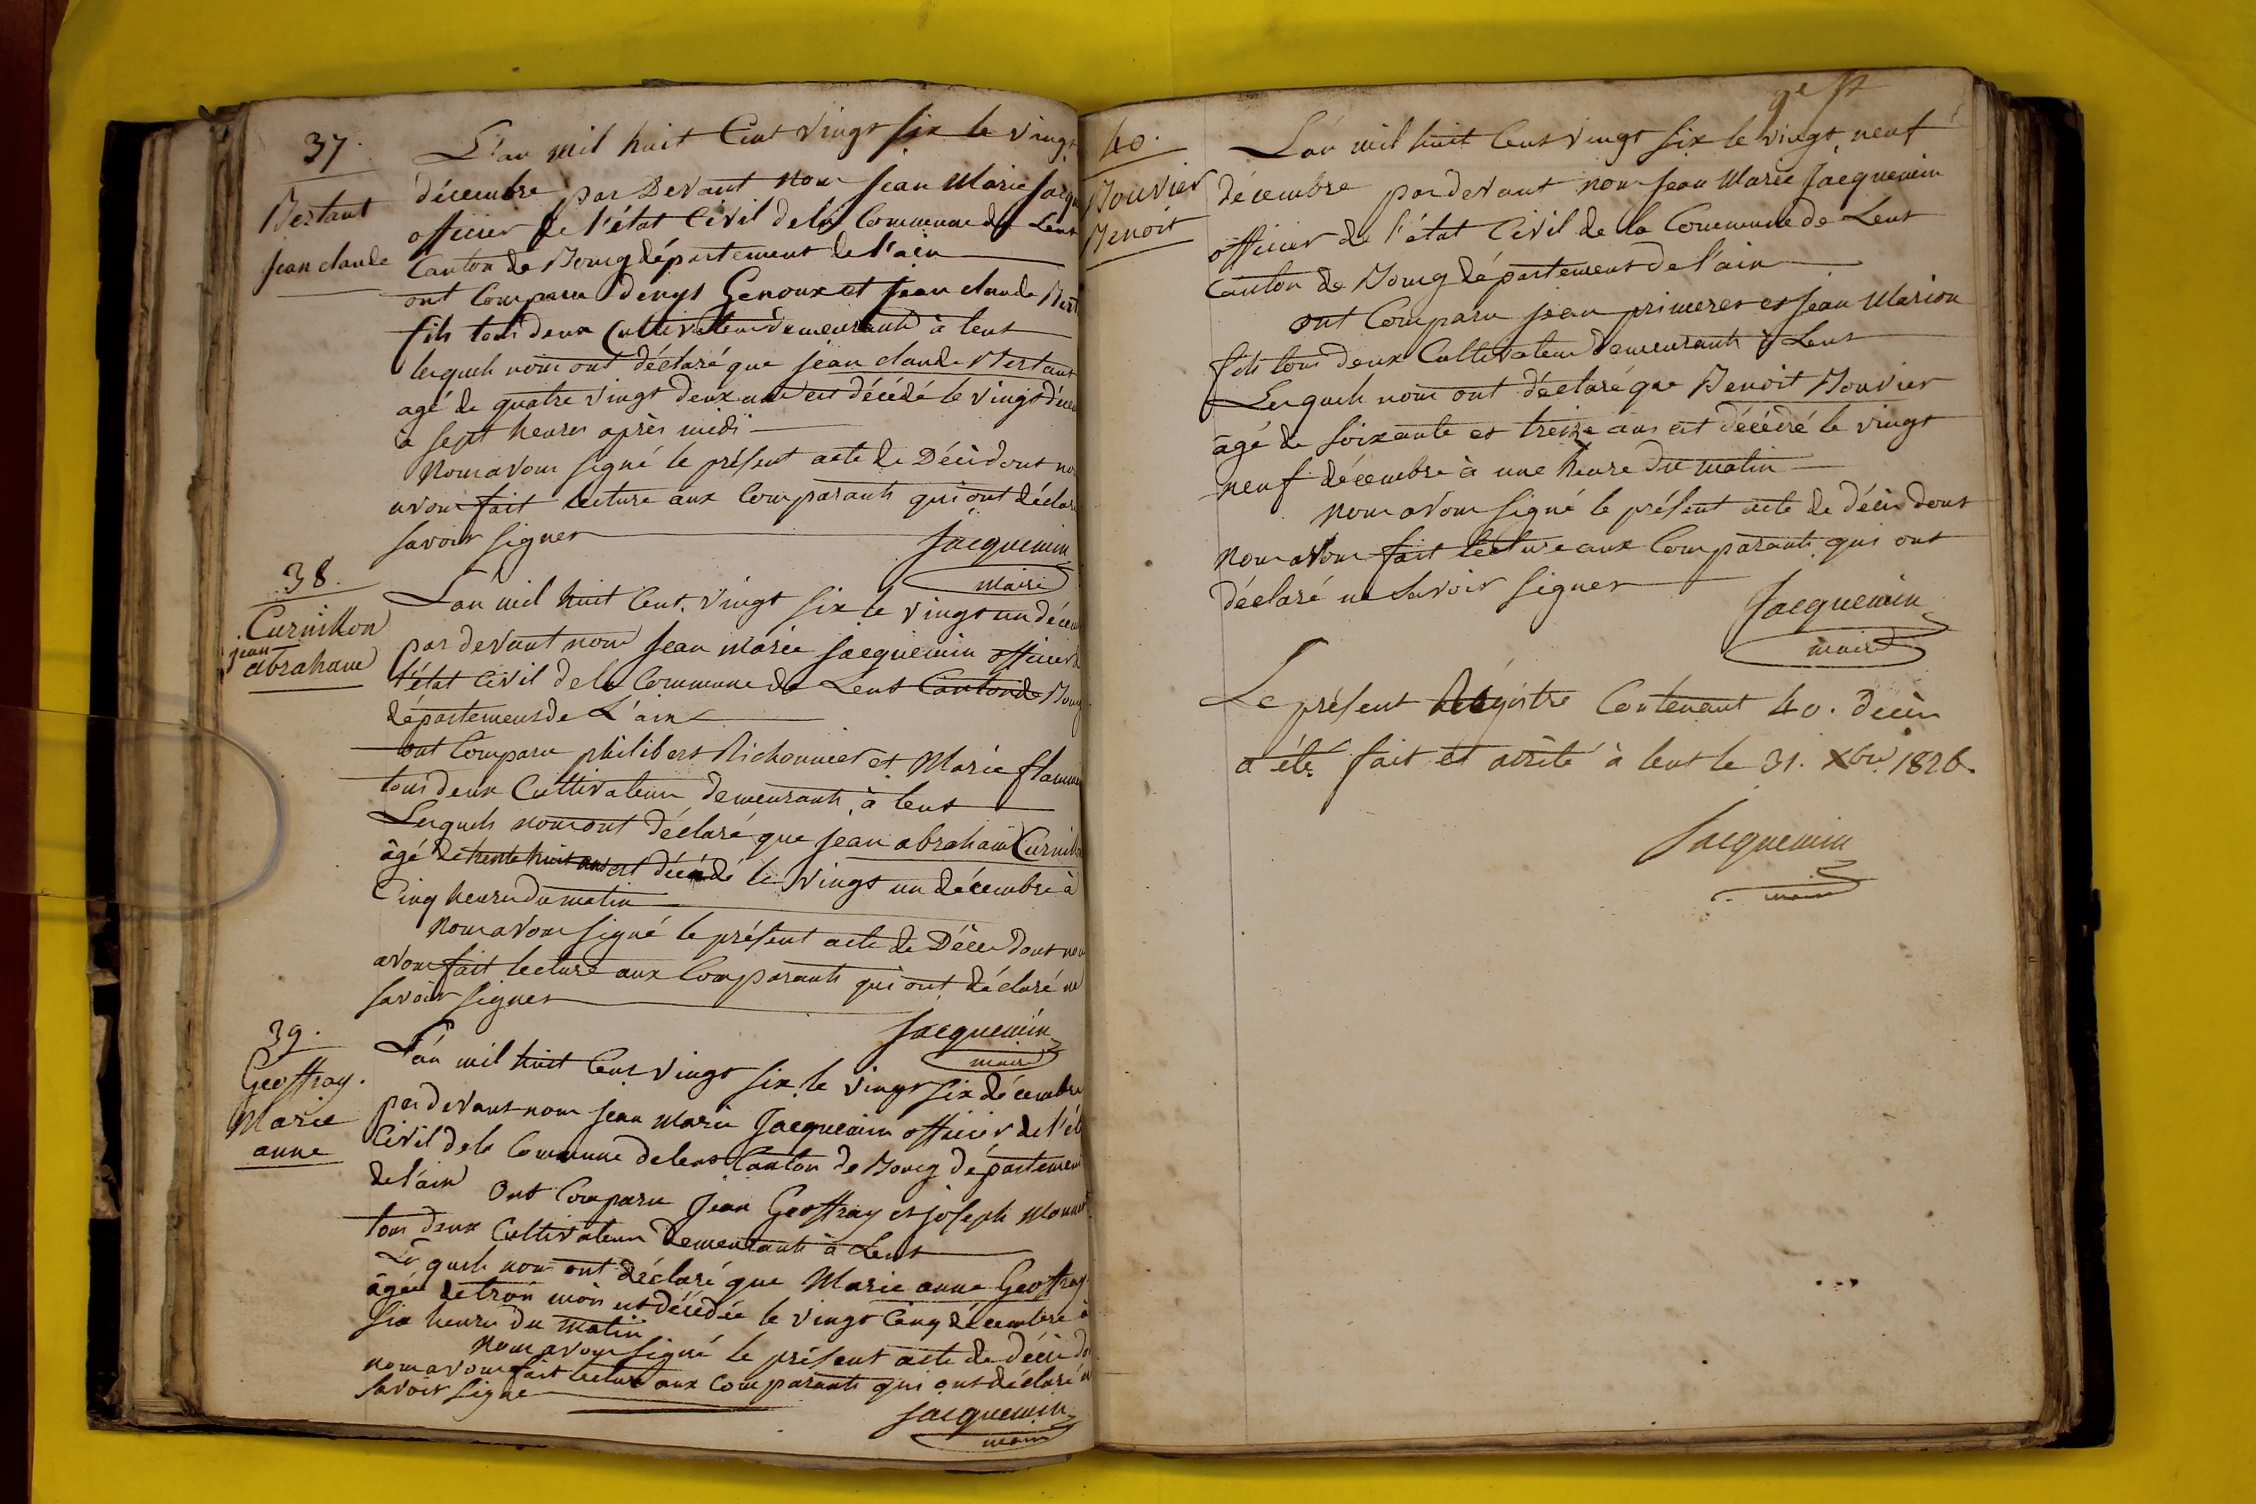 37.
Bertaut
jean claude
L'an mil huit Cent vingt six le vingt
décembre par Devant nous Jean Marie Jacqu
officier de l'état Civil dela Commune de Lent
Canton de Bourg département de l'ain
ont Comparu denys Genoux et Jean claude Bert
fils tous deux Cultivateurs demeurants à lent
lesquels nous ont déclaré que jean claude Bertaut
agé de quatre vingt deux ans est décédé le vingt déce
à sept heures après midi
nous avons signé le présent acte de Décès dont no
avons fait lecture aux Comparants qui ont déclar
savoir signer
Jacquemin
maire
38.
Curnillon
jean
abraham
L'an mil huit Cent vingt six le vingt un décem
par devant nous Jean Marie Jacquemin officier d
l'état Civil dela Commune de Lent Canton de Bourg
département de L'ain
ont Comparu philibert Richonnier et Marie flamm
tous deux Cultivateurs demeurants à lent
Lesquels nous ont déclaré que Jean abraham Curnill
âgé de trente huit ans est décédé le vingt un décembre à
Cinq heures du matin
nous avons signé le présent acte de Décès dont nou
avons fait lecture aux Comparants qui ont déclaré ne
savoir signer
Jacquemin
maire
39.
Geoffray.
Marie
anne
L'an mil huit Cent vingt six le vingt six décembre
par devant nous Jean Marie Jacquemin officier de l'ét
Civil dela Commune de lent Canton de Bourg département
de l'ain ont Comparu Jean Geoffray et joseph Monnet
tous deux Cultivateurs demeurants à Lent
Lesquels nous ont déclaré que Marie anne Geoffray
âgée de trois mois est décédée le vingt Cinq décembre à
Six heures du matin
nous avons signé le présent acte de décès do
nous avons fait lecture aux Comparants qui ont déclaré n
savoir signe
Jacquemin
maire
40.
Bouvier
Benoit
L'an mil huit Cent vingt six le vingt neuf
décembre par devant nous Jean Marie Jacquemin
officier de l'état Civil de la Commune de Lent
Canton de Bourg département de l'ain
ont Comparu jean primeres et Jean Marion
fils tous deux Cultivateurs demeurants à Lent
Lesquels nous ont déclaré que Benoit Bouvier
âgé de soixante et treize ans est décédé le vingt
neuf décembre à une heure du matin
nous avons signé le présent acte de décès dont
nous avons fait lecture aux Comparants qui ont
déclaré ne savoir signer
Jacquemin
maire
Le présent Régistre Contenant 40. décès
a été fait et arrêté à lent le 31. Xbre 1826.
Jacquemin
maire